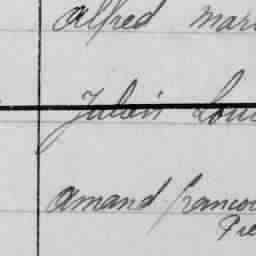 Alfred Mari
Julien Loui
Amand Francoi
Pie